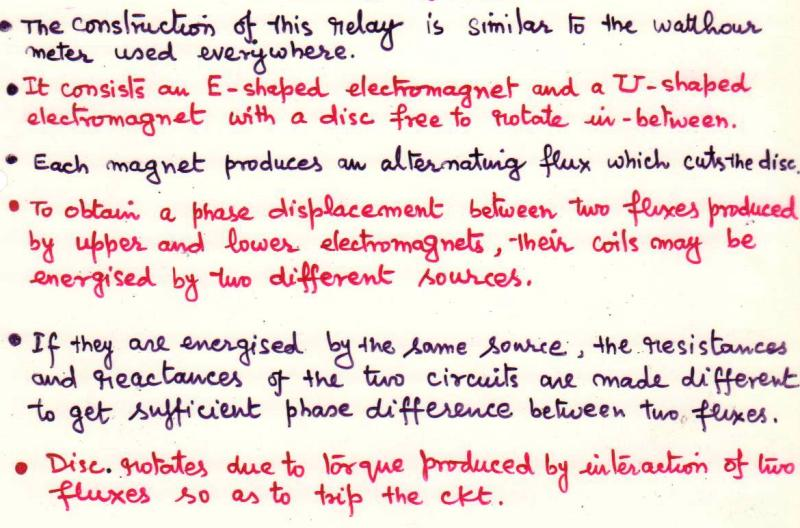 • The construction of this relay is similar to the watthour
meter used everywhere.
• It consists an E-shaped electromagnet and a U-shaped
electromagnet with a disc free to rotate in-between.
• Each magnet produces an alternating flux which cuts the disc.
• To obtain a phase displacement between two fluxes produced
by upper and lower electromagnets, their coils may be
energised by two different sources.
• If they are energised by the same source, the resistances
and reactances of the two circuits are made different
to get sufficient phase difference between two fluxes.
• Disc. rotates due to torque produced by interaction of two
fluxes so as to trip the ckt.